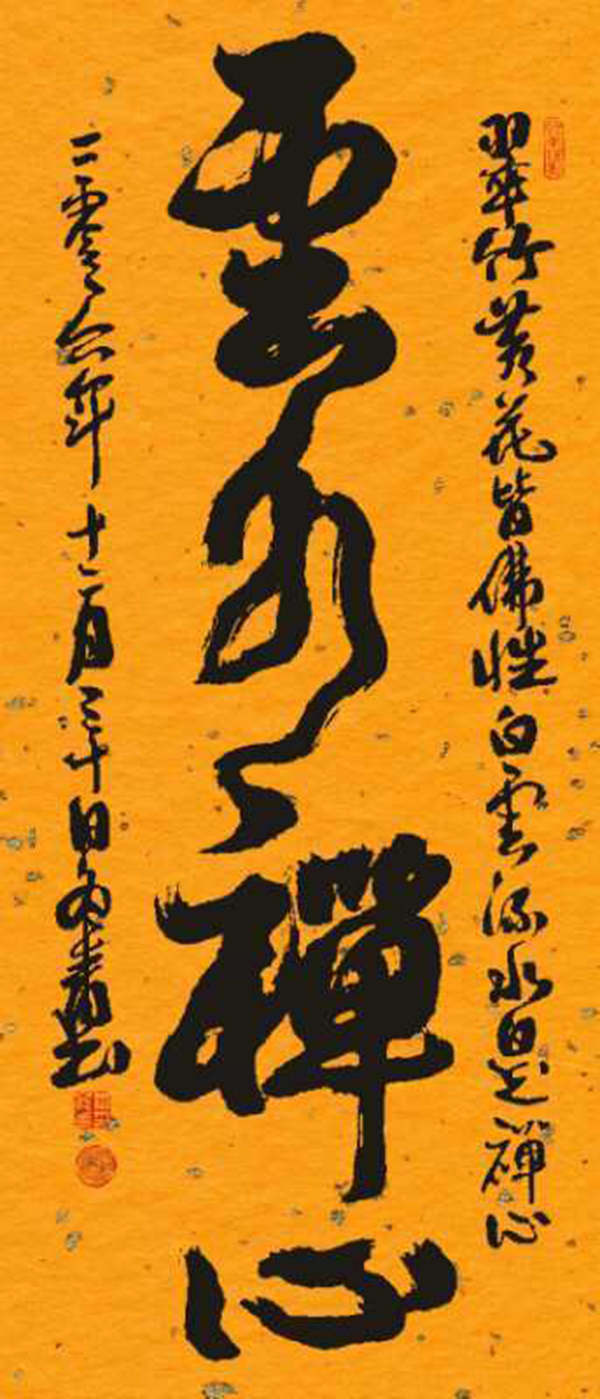 翠竹黃花皆佛性白雲流水是禪心
雲水禪心
二零零六年十二月三十日書